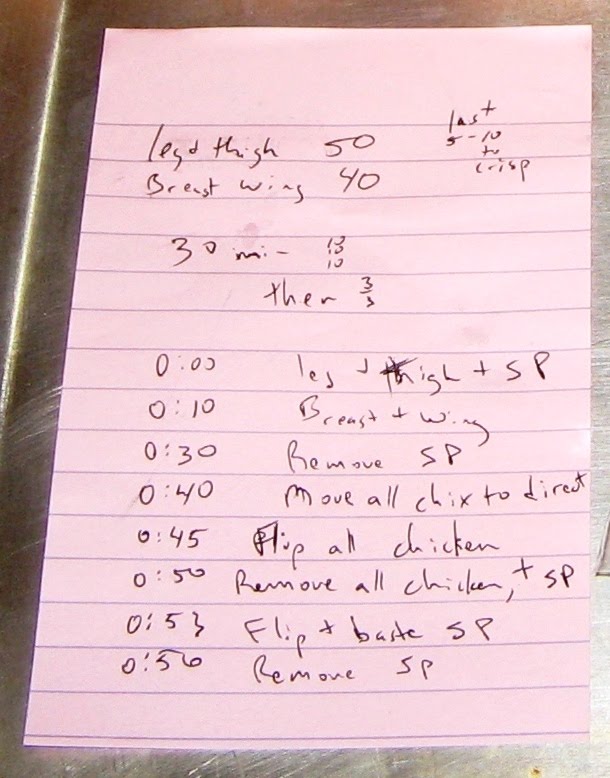 leg + thigh 50
Breast wing 40
last
5-10
to
crisp
30 min-
10
10
10
then 3/3
0:00 leg + thigh + SP
0:10 Breast + wing
0:30 Remove SP
0:40 Move all chix to direct
0:45 Flip all chicken
0:50 Remove all chicken, + SP
0:53 Flip + baste SP
0:56 Remove SP